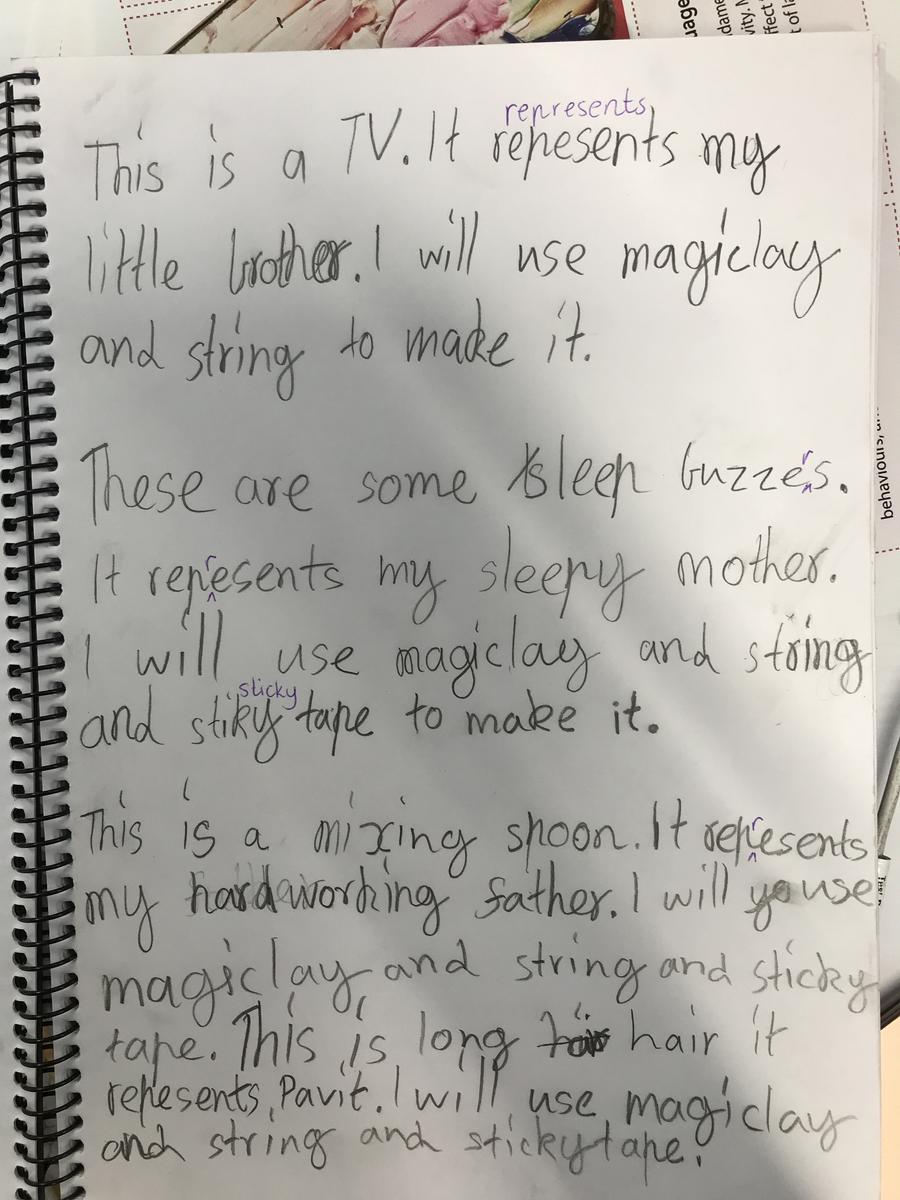 uage
dame
vity. M
ffect
t of la
represents
This is a TV. It repesents my
little brother. I will use magiclay
and string to make it.
These are some sleep buzzes.
r
It repesents my sleepy mother.
r
I will use magiclay and string
sticky
and stiky tape to make it.
This is a mixing spoon. It repesents
r
my hardworking father. I will use
magiclay and string and sticky
tape. This is long hair it
repesents Pavit. I will use magiclay
and string and stickytape.
behaviours,